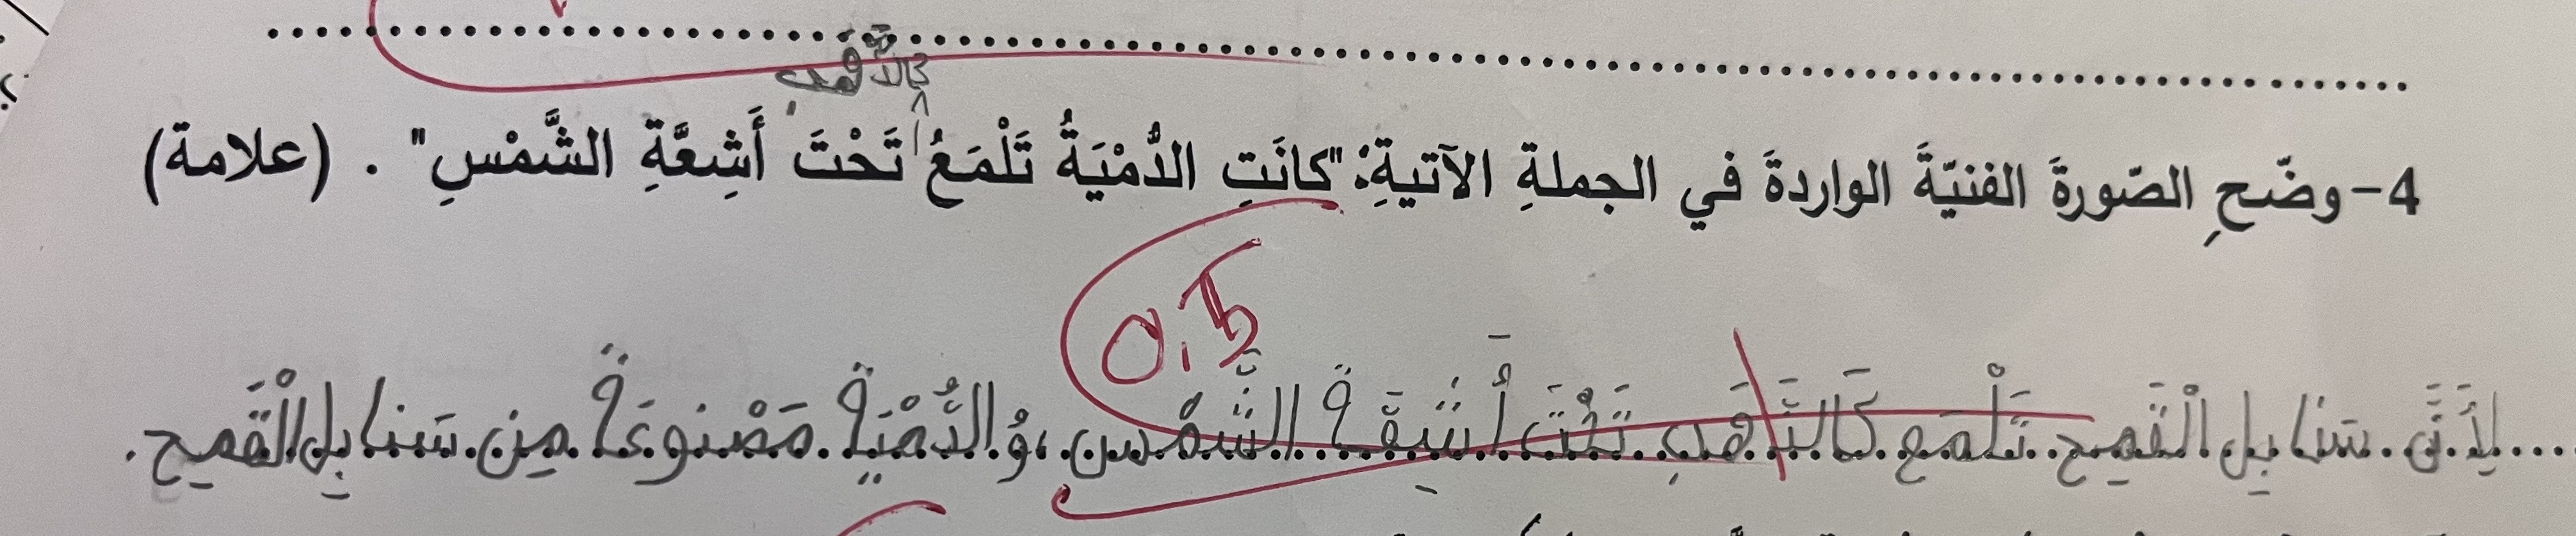 كالذَّهب
4- وضّحِ الصّورةَ الفنيّةَ الواردةَ في الجملةِ الآتيةِ: "كانَتِ الدُّمْيَةُ تَلْمَعُ تَحْتَ أَشِعَّةِ الشَّمْسِ" . (علامة)
0.5
لِأَنَّ سَنابِل الْقَمِح تَلْمَع كَالذَّهَبِ تَحْتَ أَشِعَّة الشَّمْس، وُ الدُّمْيَة مَصْنوعَة مِن سَنابِل الْقَمِح.